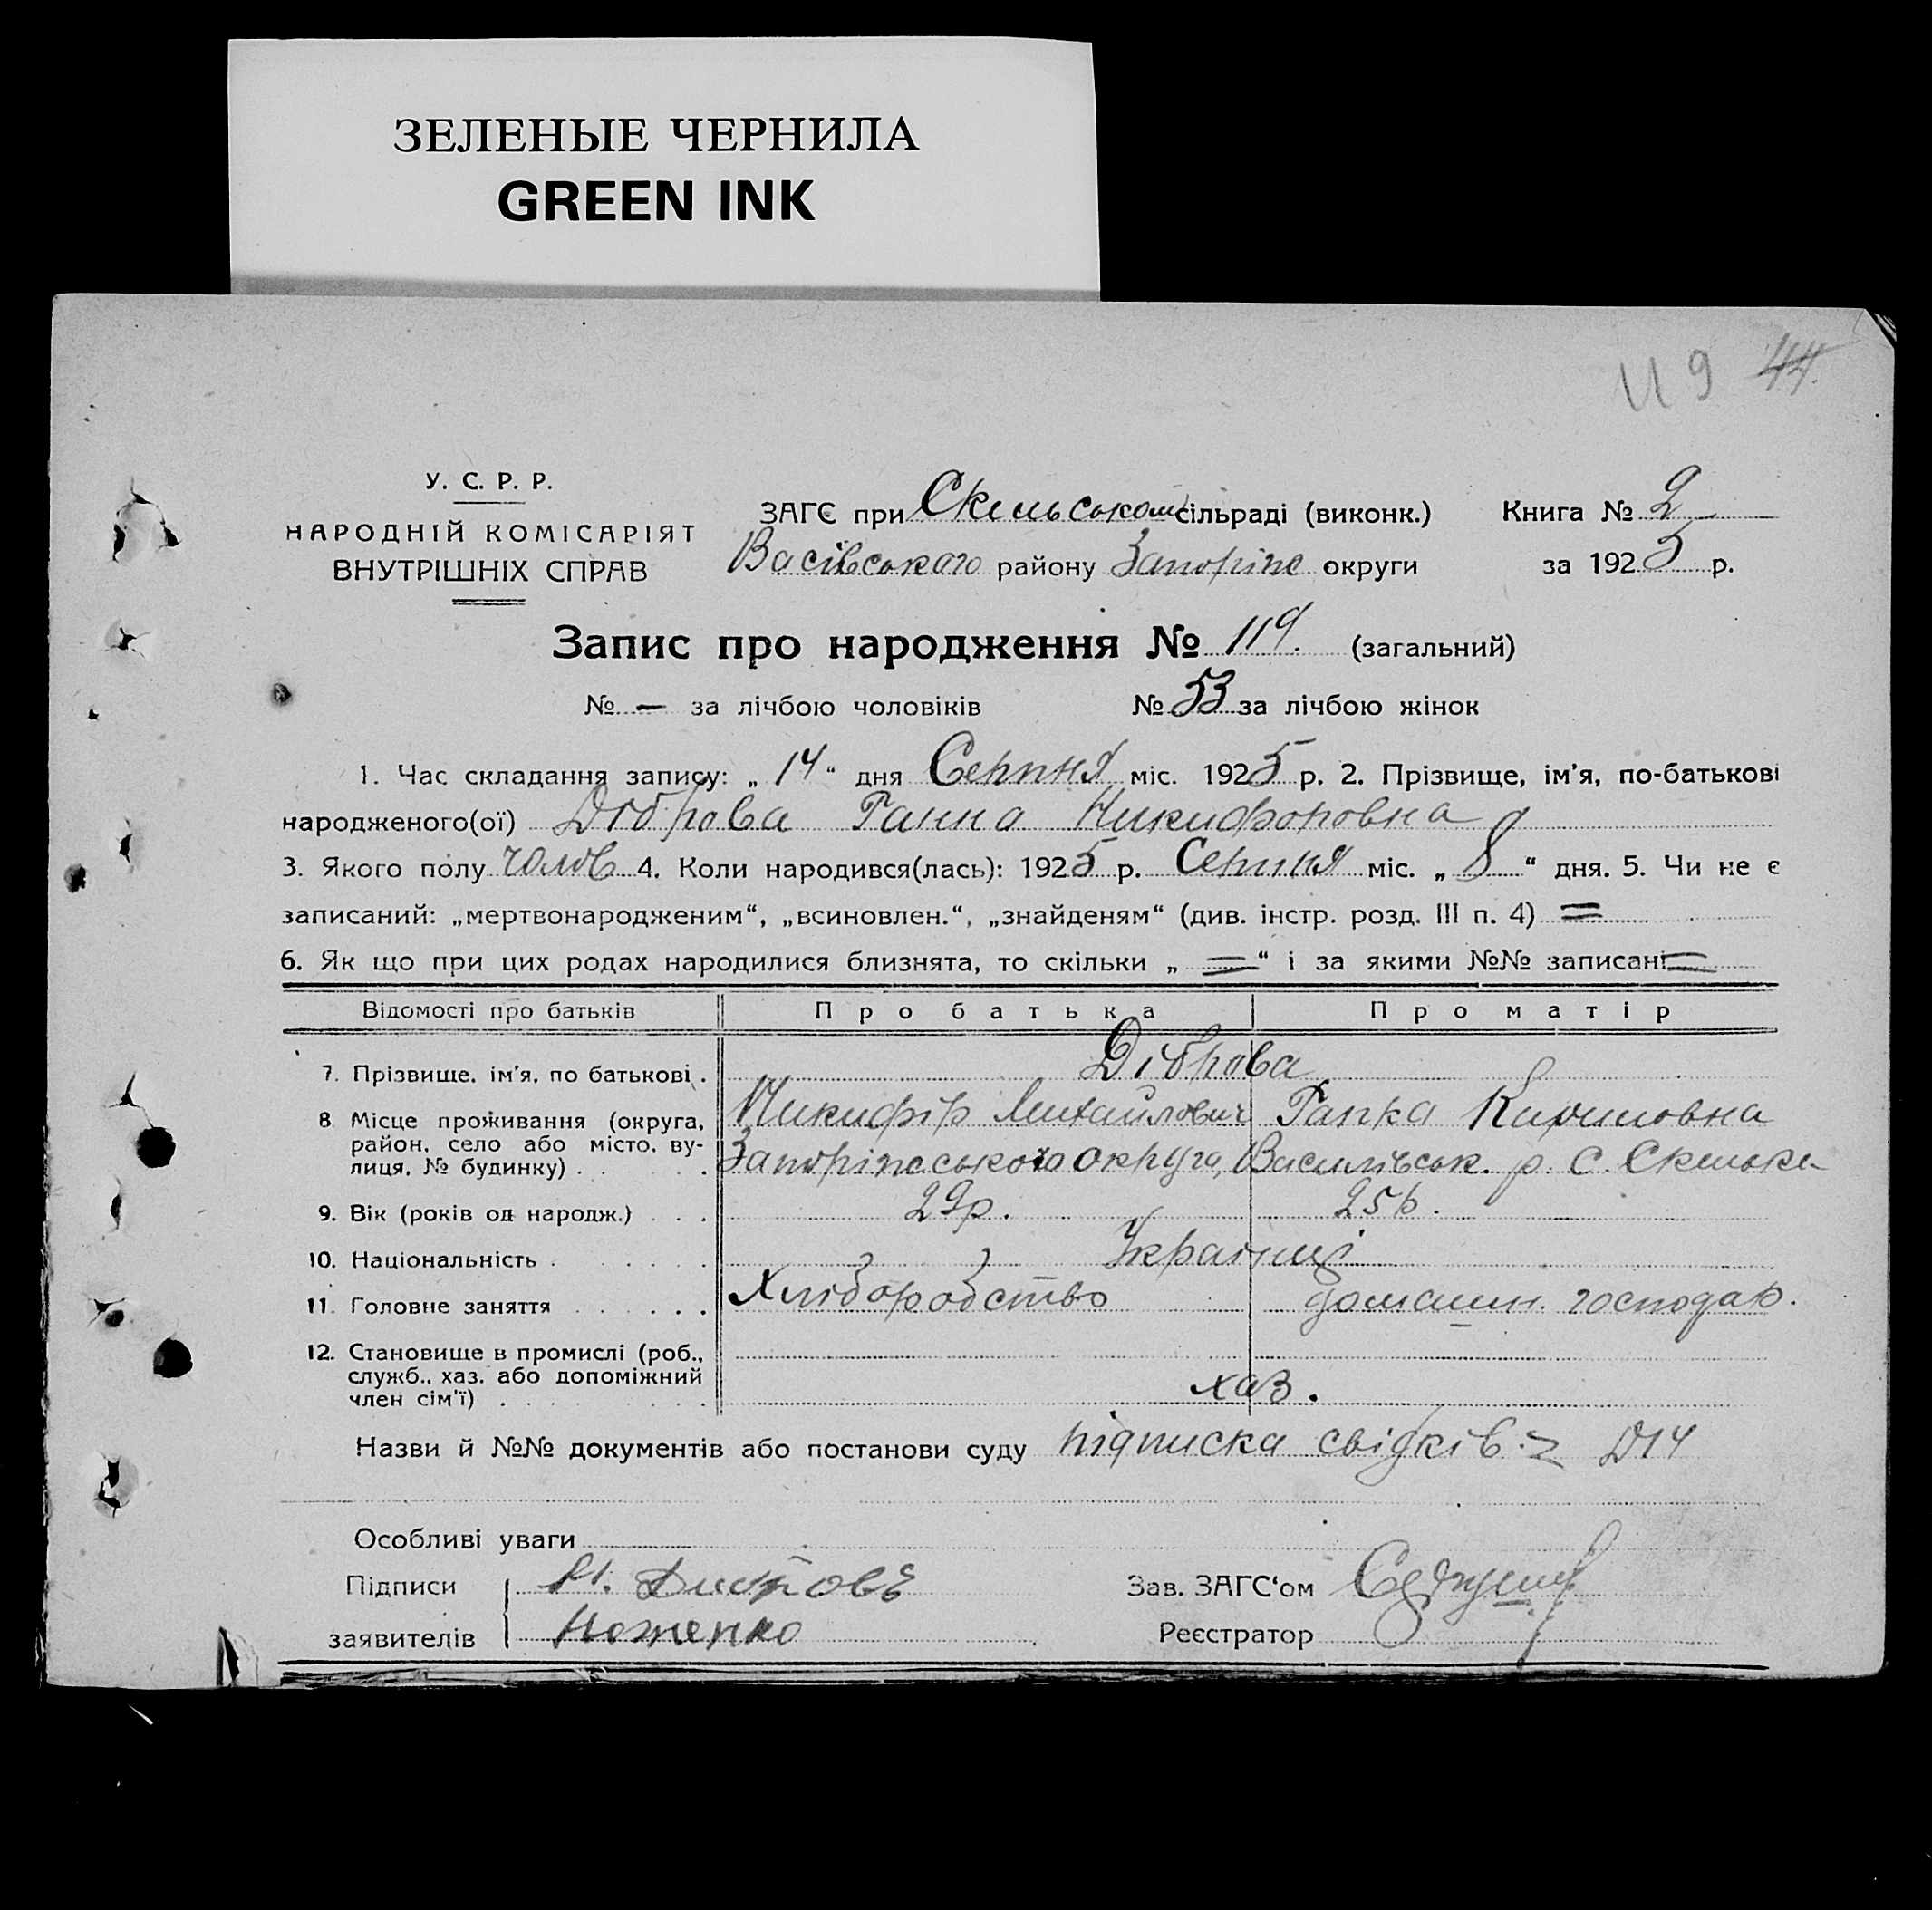 ЗЕЛЕНЫЕ ЧЕРНИЛА
GREEN INK
119 44
У. С. Р. Р.
НАРОДНІЙ КОМІСАРІЯТ
ВНУТРІШНІХ СПРАВ
ЗАГС при Скельськом сільраді (виконк.)
Васівського району Запоріж округи
Книга № 2
за 1925 р.
Запис про народження № 119. (загальний)
№ — за лічбою чоловіків № 53 за лічбою жінок
1. Час складання запису: „ 14 “ дня Серпня міс. 1925 р. 2. Прізвище, ім’я, по-батькові
народженого(ої) Діброва Ганна Никифоровна
3. Якого полу чолов 4. Коли народився(лась): 1925 р. Серпня міс. „ 8 “ дня. 5. Чи не є
записаний: „мертвонародженим“, „всиновлен.“, „знайденям“ (див. інстр. розд. III п. 4) =
6. Як що при цих родах народилися близнята, то скільки „ = “ і за якими №№ записані =
Відомості про батьків Про батька Про матір
7. Прізвище, ім’я, по батькові . Діброва
Никифір Михайлович Гапка
8 Місце проживання (округа, район, село або місто, ву-
лиця, № будинку) . . Запоріжського округа, Василівськ. р. с. Скельки
9. Вік (років од народж.) . . . 29р. 25р.
10. Національність . . . . . Українці
11. Головне заняття . . . . . . Хліборобство домашн. господар.
12. Становище в промислі (роб.,
служб., хаз. або допоміжний
член сім’ї) . . . . . хаз.
Назви й №№ документів або постанови суду підписка свідків
Особливі уваги
Підписи
заявителів Ноженко
Зав. ЗАГС‘ом
Реєстратор